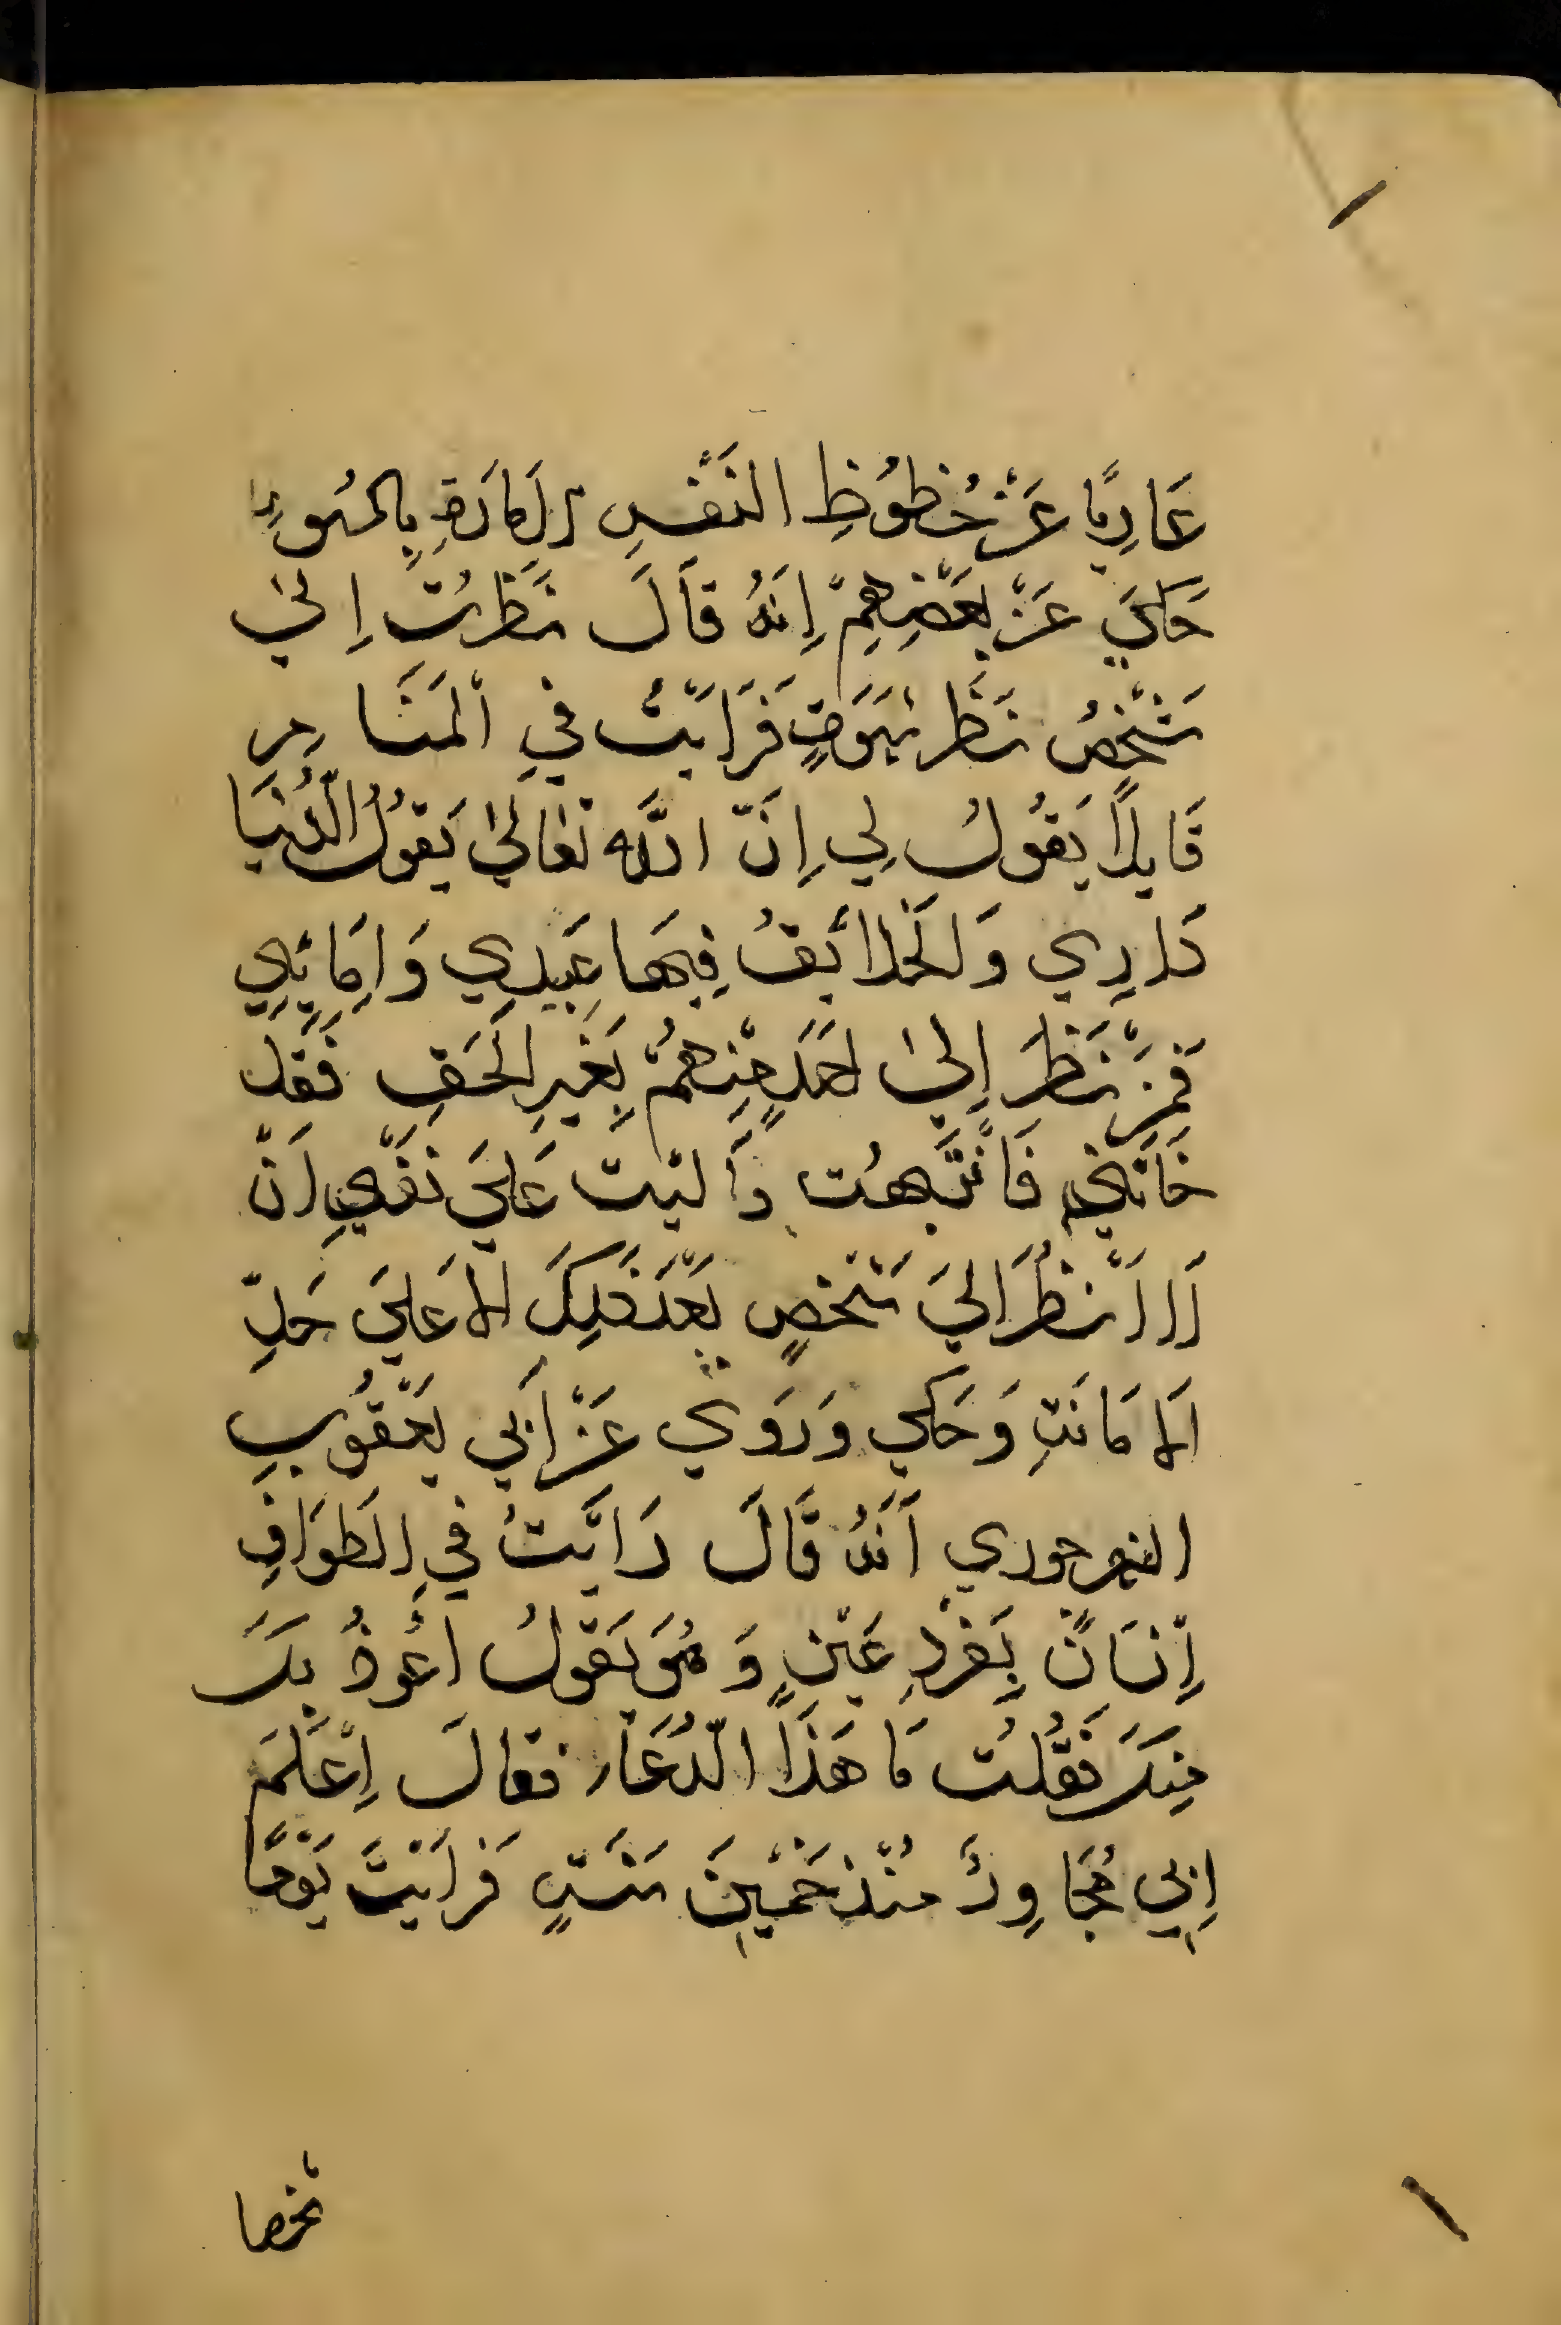 عَارِيًا عَنْ حُظُوظِ النَفْسِ الاَمَارَةِ بِالسُوءِ
حَكَيَ عَنْ بَعْضِهِمْ اِنَهُ قَالَ نَظَرْتُ اِلىٰ
شَخْصٍ نَظَر شَهَوَةٍ فَرَايَتُ فيِ المَنَامِ
قَايلًا يَقُولُ لِي اِنَّ اللَّه تعَالىٰ يَقوُلُ الدُنيَا
دَارِي وَالخَلَائَقُ فِيهَا عَبيدِي وَاِمَائِي
فَمِنْ نَظَرَ اِلىٰ اَحَدٍ مِنهُمْ بِغَيرِ الحَقِ فَقَد
خَانَنِي فَانْتَبَهْت وَاَليْت عَلىَ نفَسْي اَنْ
لَا اَنظُرَ اِليَ شَخْصٍ بَعْدَ ذَلِكَ الا عَليَ حَدِّ
الامَانَتِ وَحَكي وَرَوَي عَنْ اَبي يَعْقُوبِ
النهرجوري اَنَهُ قَالَ رَايَتُ فيِ الطَوَافِ
اِنسَانٌ بِفَرْدِ عَيْنٍ وَهُوَ يَقولُ اعُوذُ بِكَ
مِنكَ فَقُلتُ مَا هَذَا الدُعَاء فقالَ اِعْلَم
اِنِي مُجَاوِرٌ مُنْذ خَمْسِينَ سَنَتٍ فَرايْتُ يَوْمًا
شخصا